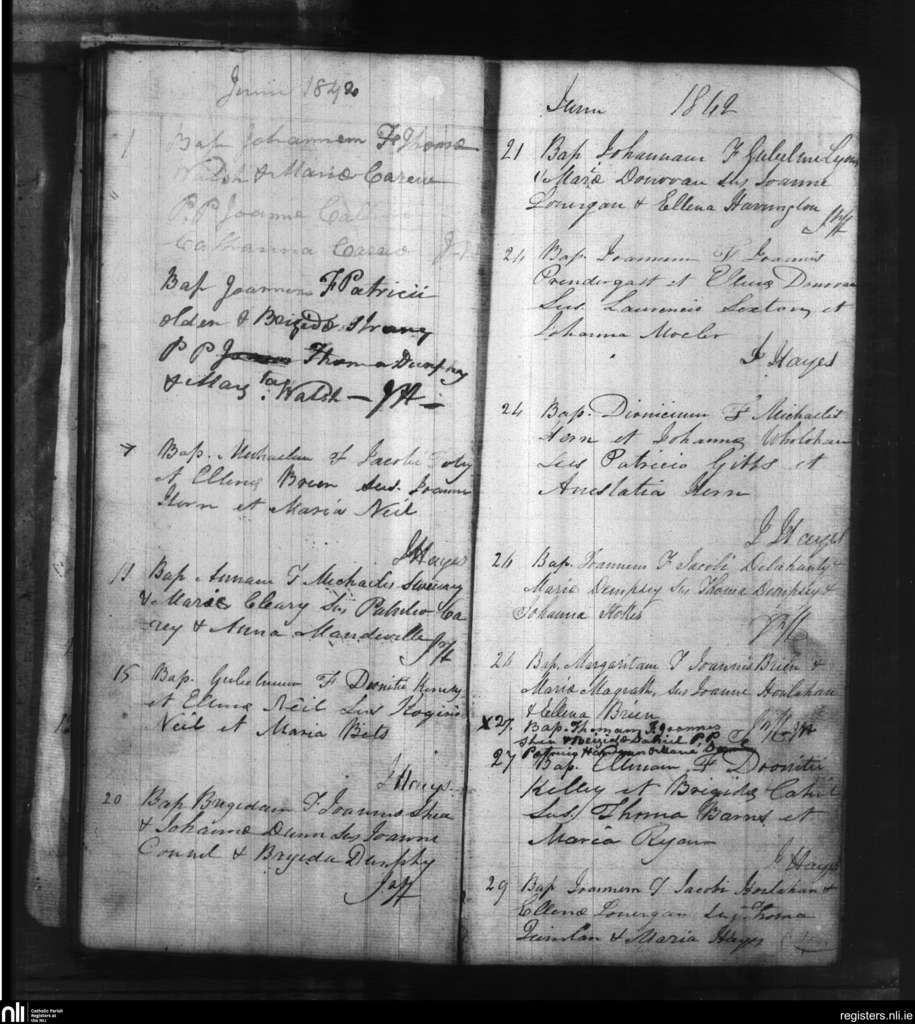 Junii 1842
1 Bap Johannem F Thomæ
Walsh & Mariæ Carew
P.P Joanne
Catharina Carew
Bap Joannem F Patricii
olden & Brigidæ Strang
P P Thoma Dunphy
& Marg ta. Walsh — JH —
7 Bap. Michaelem F Jacobi Foley
et Ellenæ Brien Sus. Joanne
Horn et Maria Neil
J Hayes
11 Bap Annam F Michaelis Sweeney
& Mariæ Cleary Sus Patricio Ca
rey & Anna Mandeville JH
15 Bap. Gulielmum F Dionitii
et Ellenæ Neil Sus Rogirio
Neil et Maria
J Hayes
20 Bap Brigidam F Joannis Shea
& Johannæ Dunn Sus Joanne
Connel & Brigida Dunphy
J H
Junii 1842
21 Bap Johannam F Gulielmi Lyons
& Mariæ Donovan sus Joanne
Lonergan & Ellena Harrington JH
24 Bap. Joannem F Joannis
Prendergast et Ellenæ Donovan
Sus. Laurencio Sexton et
Johanna
J Hayes
24 Bap. Dionicium F Michaelis
Hern et Johannæ Wholohan
Sus Patricio Gibbs et
Anastatia Hern
J Hayes
26 Bap. Joannem F Jacobi Delahanty &
Mariæ Dempsey Sus Thoma Dempsey &
Johanna Stokes
JH
26 Bap. Margaritam F Joannis Brien &
Mariæ Magrath, Sus Joanne Houlahan
& Ellena Brien
X 27. Bap. Thomam F. Joannis
Shea & Brigidæ Dalniel P.P.
Patricio & Maria
27 Bap. Ellenam F Dionitii
Killey et Brigidæ Cahil
Sus. Thoma Barns et
Maria Ryan
J Hayes
29 Bap Joannem F Jacobi Houlahan &
Ellenæ Lonergan Sus Thoma
Quinlan & Maria Hayes
nli
Catholic Parish
Registers at
the NLI
registers.nli.ie